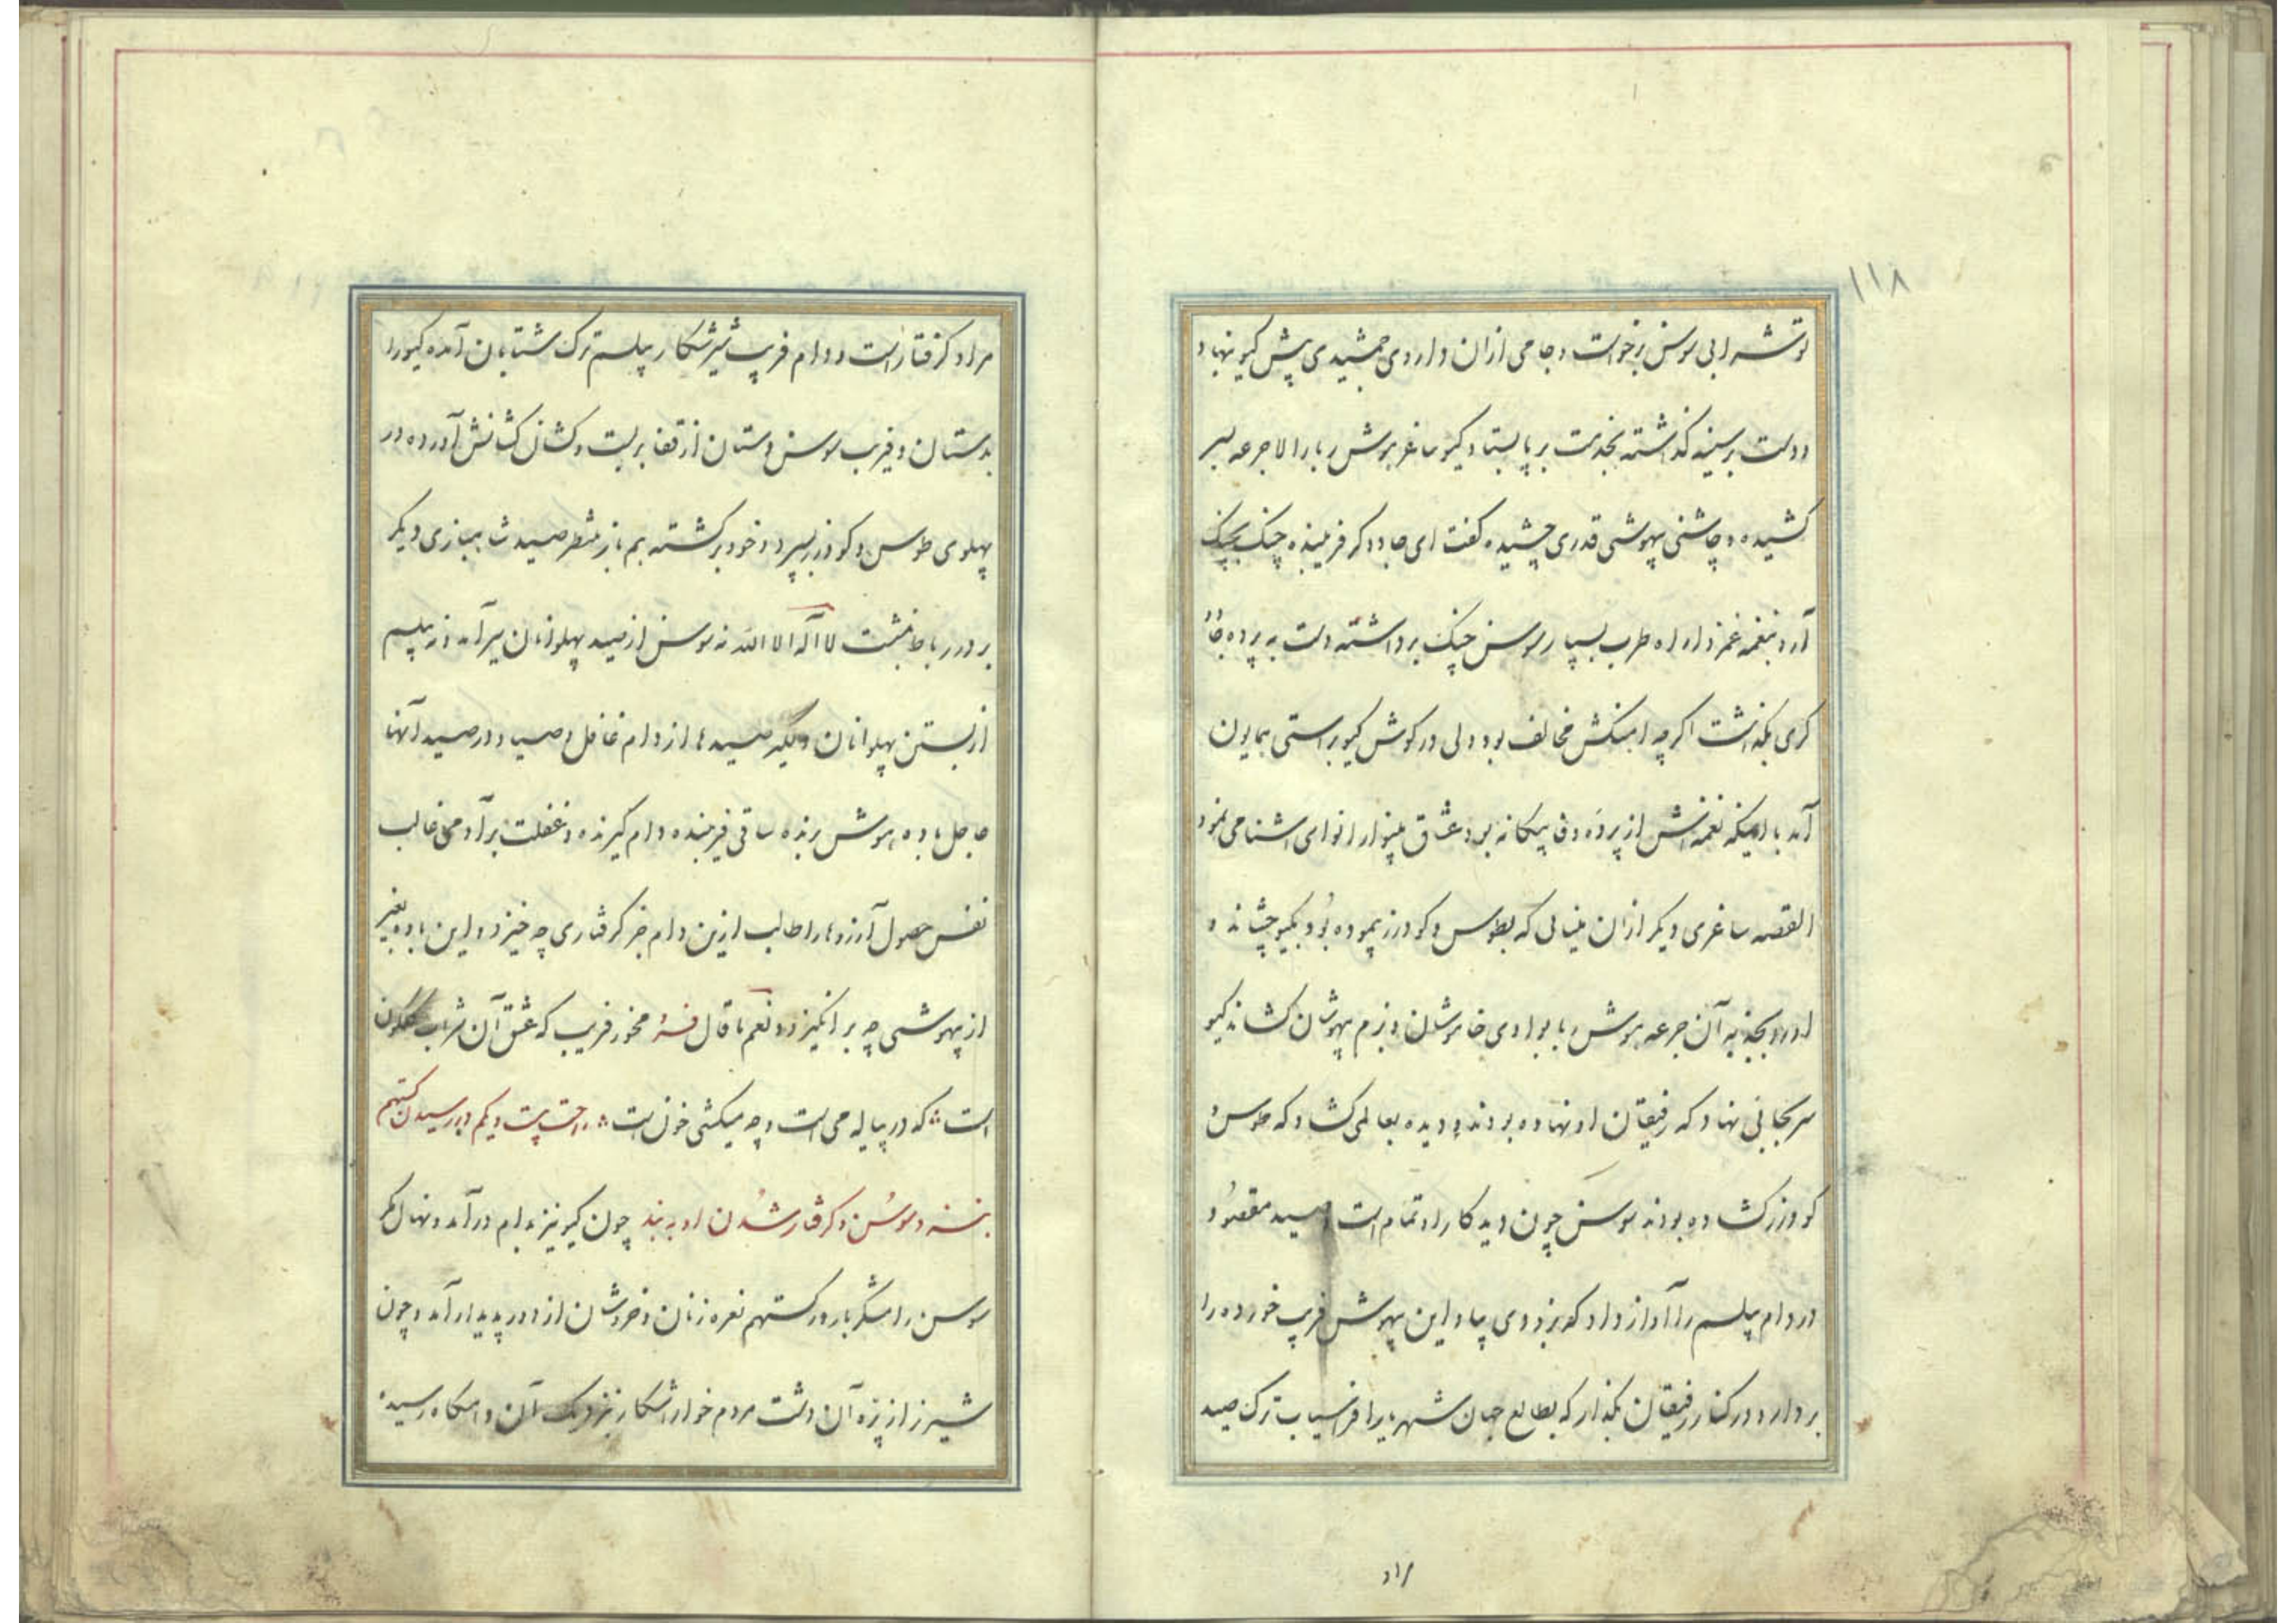 ۱۱۸
تو شرابی سوسن برخواست و جامی ازان داروی جمشیدی پیش کیو نهاد
و دست بر سینه کذاشته بخدمت بر پا بستاد کیو ساغر هوش ربا را لاجرعه بسر
کشیده و چاشنی بیهوشی قدری چشیده کفت ای جادوکر فریبنده چنک بچنک
آر و بنغمه غمزدا راه طرب بسپار سوسن چنک برداشته دست به پرده
کری بکذاشت اکرچه اهنکش مخالف بود ولی در کوش کیو براستی همایون
آمد با اینکه نغمه‌اش از پرده وفا بیکانه بود عشاق بینوا را نوای اشنا می نمود
القصه ساغری دیکر ازان مینائی که بطوس و کودرز پیموده بود بکیو چشاند و
او را بجذبه آن جرعه هوش ربا بوادی خاموشان و بزم بیهوشان کشاند کیو
سر بجائی نهاد که رفیقان او نهاده بودند و دیده بعالمی کشاد که طوس و
کودرز کشاده بودند سوسن چون دید کار او تمام است و صید مقصود
در دام پیلسم را آواز داد که بزودی بیا و این بیهوش فریب خورده را
بردار و در کنار رفیقان بکذار که بطالع جهان شهریار افراسیاب ترک صید
مراد
مراد کرفتار است و دام فریب شیر شکار پیلسم ترک شتابان آمده کیو را
بدستان و فریب سوسن دستان از قفا بر بست و کشان کشانش آورده در
پهلوی طوس و کودرز بسپرد و خود برکشته هم باز منتظر صید شهبازی دیکر
بر در رباط بنشست لا اله الا الله نه سوسن از صید پهلوانان سیر آمد و نه پیلسم
از بستن پهلوانان دلکیر صیدها از دام غافل و صیاد در صید آنها
عاجل باده هوش برنده ساقی فریبنده دام کیرنده و غفلت بر آدمی غالب
نفس حصول آرزوها را طالب ازین دام جز کرفتاری چه خیزد و این باده بغیر
از بیهوشی چه بر انکیزد و نعم ما قال فرد مخور فریب که عشق آن شراب کلکون
است که در پیاله می است و چه میکشی خون است داستان بیست و یکم در رسیدن کستهم
بنزد سوسن و کرفتار شدن او به بند چون کیو نیز بدام درآمد و نهال مکر
سوسن رامشکر بارور کستهم نعره زنان و خروشان از دور پدیدار آمد و چون
شیر ژیان آن دشت مردم خوار شکار نزدیک آن دامکاه رسیده